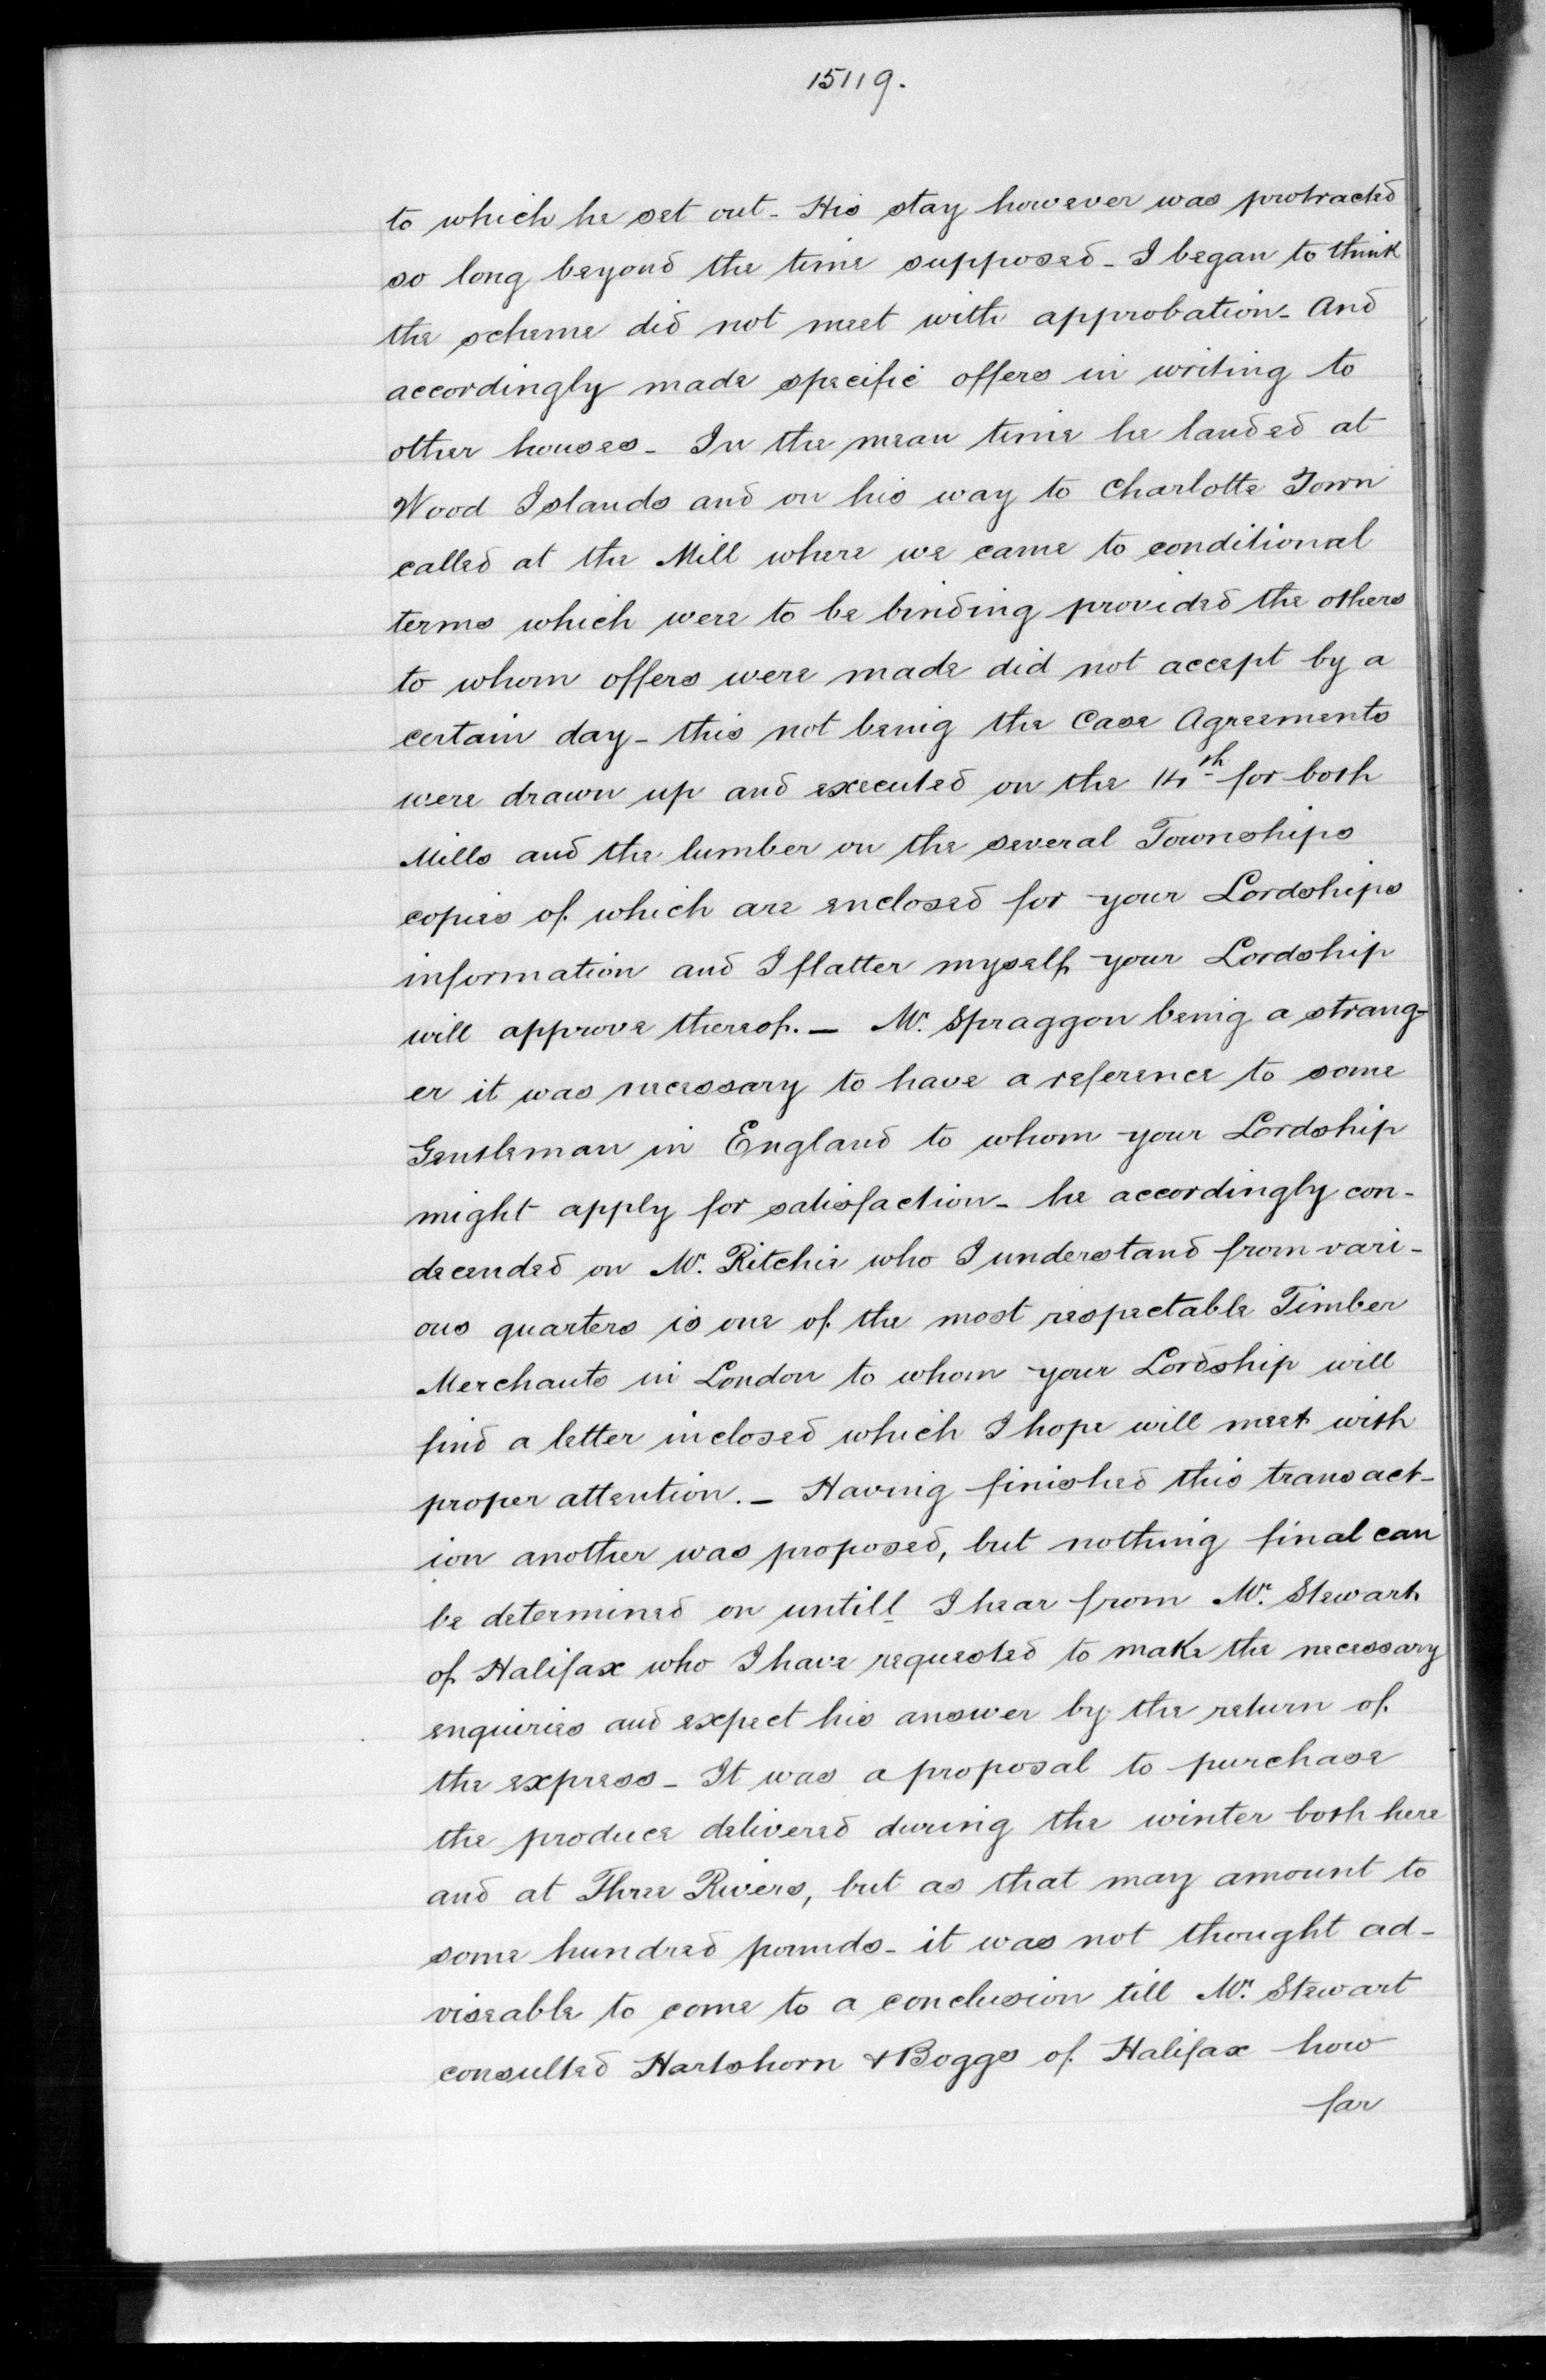 15119.
to which he set out - His stay however was protracted
so long beyond the time supposed - I began to think
the scheme did not meet with approbation - And
accordingly made specific offers in writing to
other houses - In the mean time he landed at
Wood Islands and on his way to Charlotte Town
called at the Mill where we came to conditional
terms which were to be binding provided the others
to whom offers were made did not accept by a
certain day - this not being the Case Agreements
were drawn up and executed on the 14th for both
Mills and the lumber on the several Townships
copies of which are enclosed for your Lordships
information and I flatter myself your Lordship
will approve thereof. - Mr. Spraggon being a strang-
er it was necessary to have a reference to some
Gentleman in England to whom your Lordship
might apply for satisfaction - he accordingly con-
decended on Mr. Ritchie who I understand from vari-
ous quarters is one of the most respectable Timber
Merchants in London to whom your Lordship will
find a letter inclosed which I hope will meet with
proper attention. - Having finished this transact-
ion another was proposed, but nothing final can
be determined on untill I hear from Mr. Stewart
of Halifax who I have requested to make the necessary
enquiries and expect his answer by the return of
the express - It was a proposal to purchase
the produce delivered during the winter both here
and at Three Rivers, but as that may amount to
some hundred pounds - it was not thought ad-
viseable to come to a conclusion till Mr. Stewart
consulted Hartshorn & Boggs of Halifax how
far